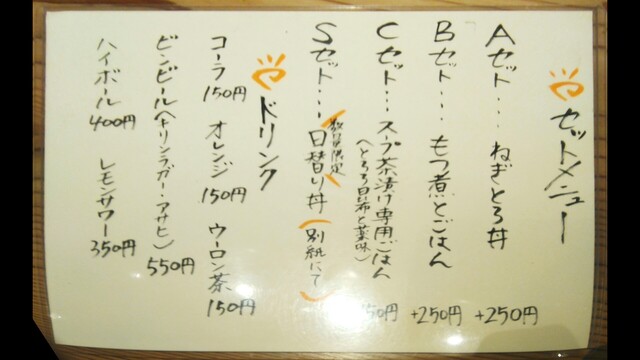 セットメニュー
Aセット… ねぎとろ丼 +250円
Bセット… もつ煮とごはん +250円
Cセット… スープ茶漬け専用ごはん 50円
(とろろ昆布と薬味)
Sセット… 日替り丼(別紙にて)
数量限定
ドリンク
コーラ 150円 オレンジ 150円 ウーロン茶 150円
ビンビール(キリンラガー・アサヒ) 550円
ハイボール 400円 レモンサワー 350円